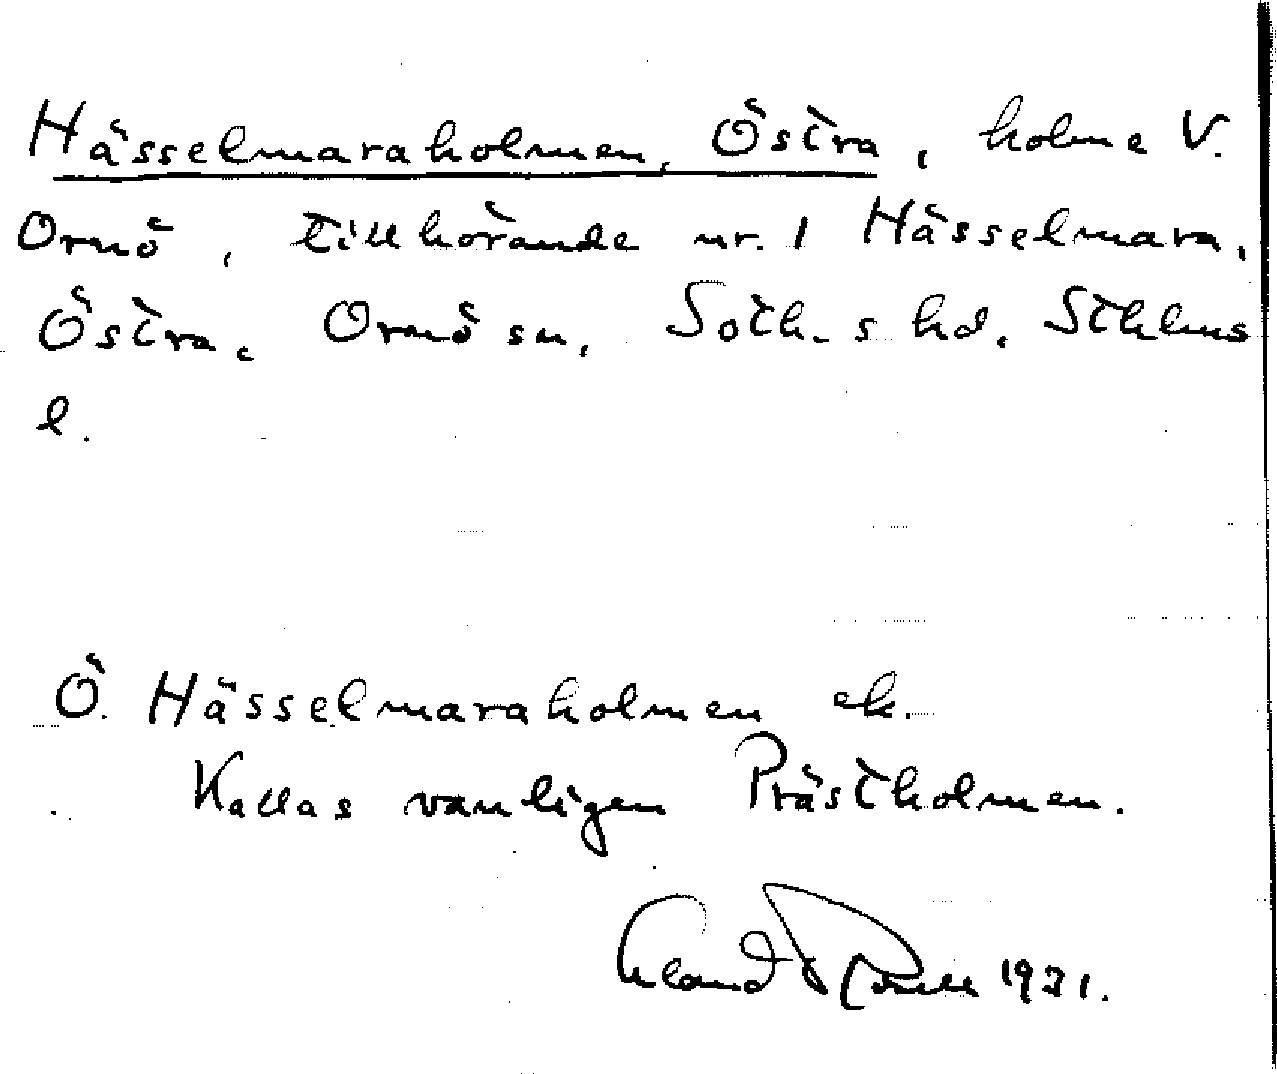 Hässelmaraholmen, Östra, holme V.
Ornö, tillhörande nr. 1 Hässelmara,
Östra, Ornö sn, Soth-s hd, Sthlms
l.
Ö. Hässelmaraholmen ek.
Kallas vanligen Prästholmen.
1931.